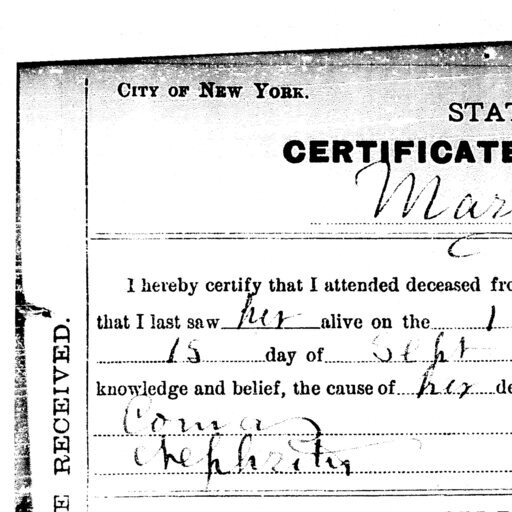 CITY OF NEW YORK.
STAT
CERTIFICATE
Mar
I hereby certify that I attended deceased fro
that I last saw her alive on the 1
15 day of Sept
knowledge and belief, the cause of her de
Coma
Nephritis
E RECEIVED.